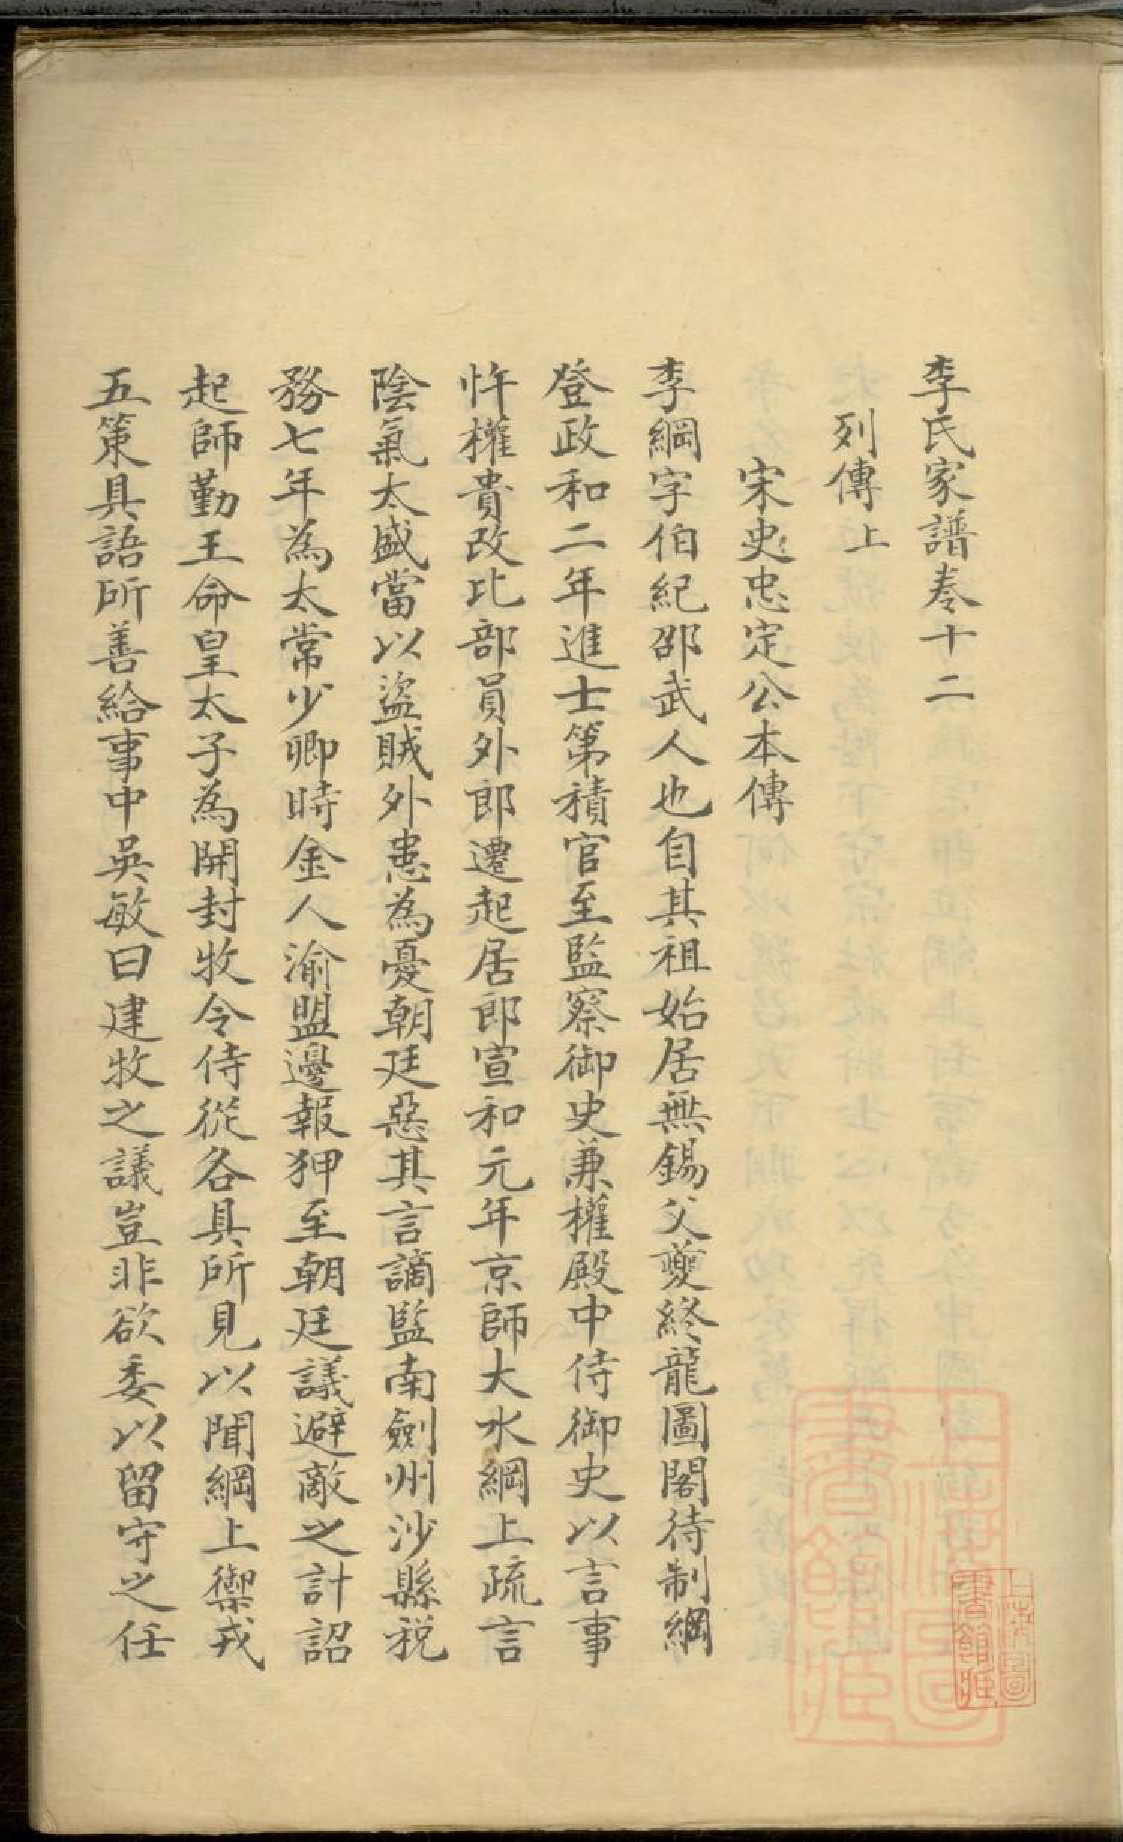 李氏家譜卷十二
列傳上
宋史忠定公本傳
李綱字伯紀邵武人也自其祖始居無錫父夔終龍圖閣待制綱
登政和二年進士第積官至監察御史兼權殿中侍御史以言事
忤權貴改比部員外郎遷起居郎宣和元年京師大水綱上疏言
陰氣太盛當以盜賊外患為憂朝廷惡其言謫監南劍州沙縣税
務七年為太常少卿時金人渝盟邊報狎至朝廷議避敵之計詔
起師勤王命皇太子為開封牧令侍從各具所見以聞綱上禦戎
五策具語所善給事中吳敏曰建牧之議豈非欲委以留守之任
上海圖書館藏